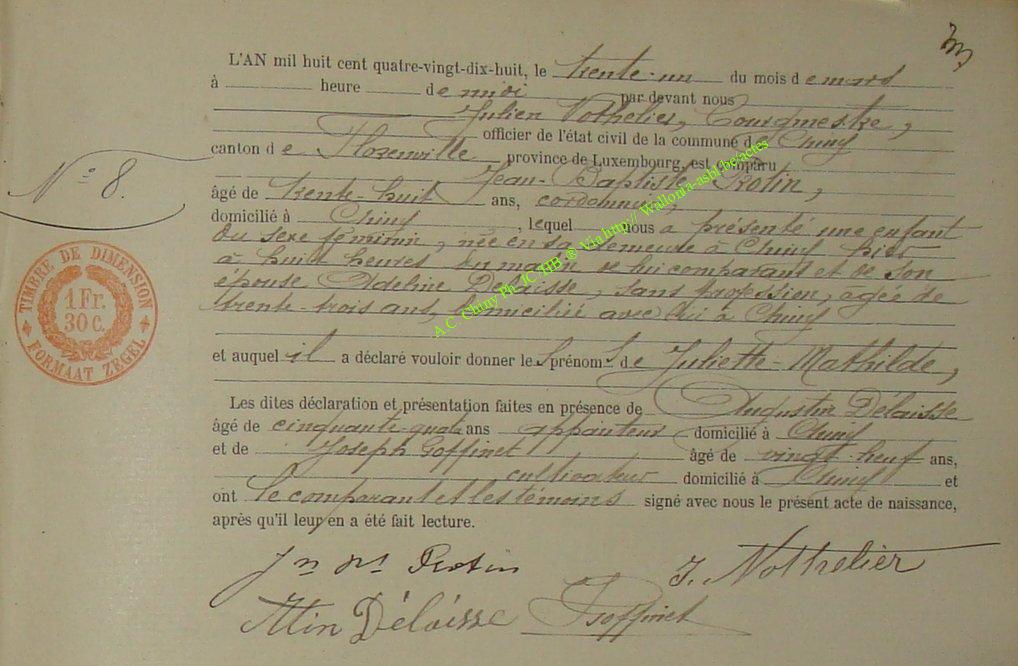 L'AN mil huit cent quatre-vingt-dix-huit, le trente-un du mois de mars
à heure de midi par devant nous
Julien Nothelier, Bourgmestre,
officier de l'état civil de la commune de Chiny
canton de Florenville province de Luxembourg, est comparu
N° 8.
Jean-Baptiste Protin,
âgé de trente-huit ans, cordonnier,
domicilié à Chiny, lequel nous a présenté une enfant
du sexe féminin, née en sa demeure à Chiny hier
à huit heures du matin de lui comparant et de son
épouse Adeline Délaisse, sans profession, âgée de
trente-trois ans, domiciliée avec lui à Chiny
TIMBRE DE DIMENSION
1 Fr.
30 C.
FORMAAT ZEGEL
et auquel il a déclaré vouloir donner les prénoms de Juliette-Mathilde,
Les dites déclaration et présentation faites en présence de Augustin Délaisse
âgé de cinquante-quatre ans appariteur domicilié à Chiny
et de Joseph Goffinet âgé de vingt-neuf ans,
cultivateur domicilié à Chiny et
ont le comparant et les témoins signé avec nous le présent acte de naissance,
après qu'il leur en a été fait lecture.
Jn Bte Protin J. Nothelier
Atin Délaisse J Goffinet
A.C. Chiny Ph. JC. HB ® Via http// Wallonia-asbl.be/actes